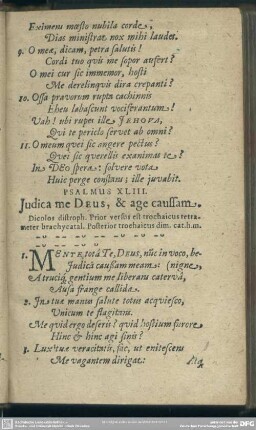 Eximens mœsto nubila corde,
Dias ministrat nox mihi laudes.
9. O meæ, dicam, petra salutis!
Cordi tuo qvis me sopor aufert?
O mei cur sic immemor, hosti
Me derelinqvis dira crepanti?
10. Ossa pravorum rupta cachinnis
Eheu labascunt vociferantum!
Vah! ubi rupes ille JEHOVA,
Qui te periclo servet ab omni?
11. O meum qvei sic angere pectus?
Qvei sic querelis exanimat te?
In DEO spera: solvere vota
Huic perge constans; ille juvabit.
PSALMUS XLIII.
Judica me DEUS, & age caussam.
Dicolos distroph. Prior versus est trochaicus tetra-
meter brachycatal. Posterior trochaicus dim. cat.h.m.
1. MENTE totâ Te, DEUS, nũc in voco, be-
Judicâ caussam meam: (nigne,
A truci gentium me liberans catervâ,
Ausa frange callida.
2. In tuæ manu salute totus acqviesco,
Unicum te flagitans.
Me qvid ergo deseris? qvid hostium furore
Hinc & hinc agi sinis?
3. Lux tuæ veracitatis, fac, ut enitescens
Me vagantem dirigat: